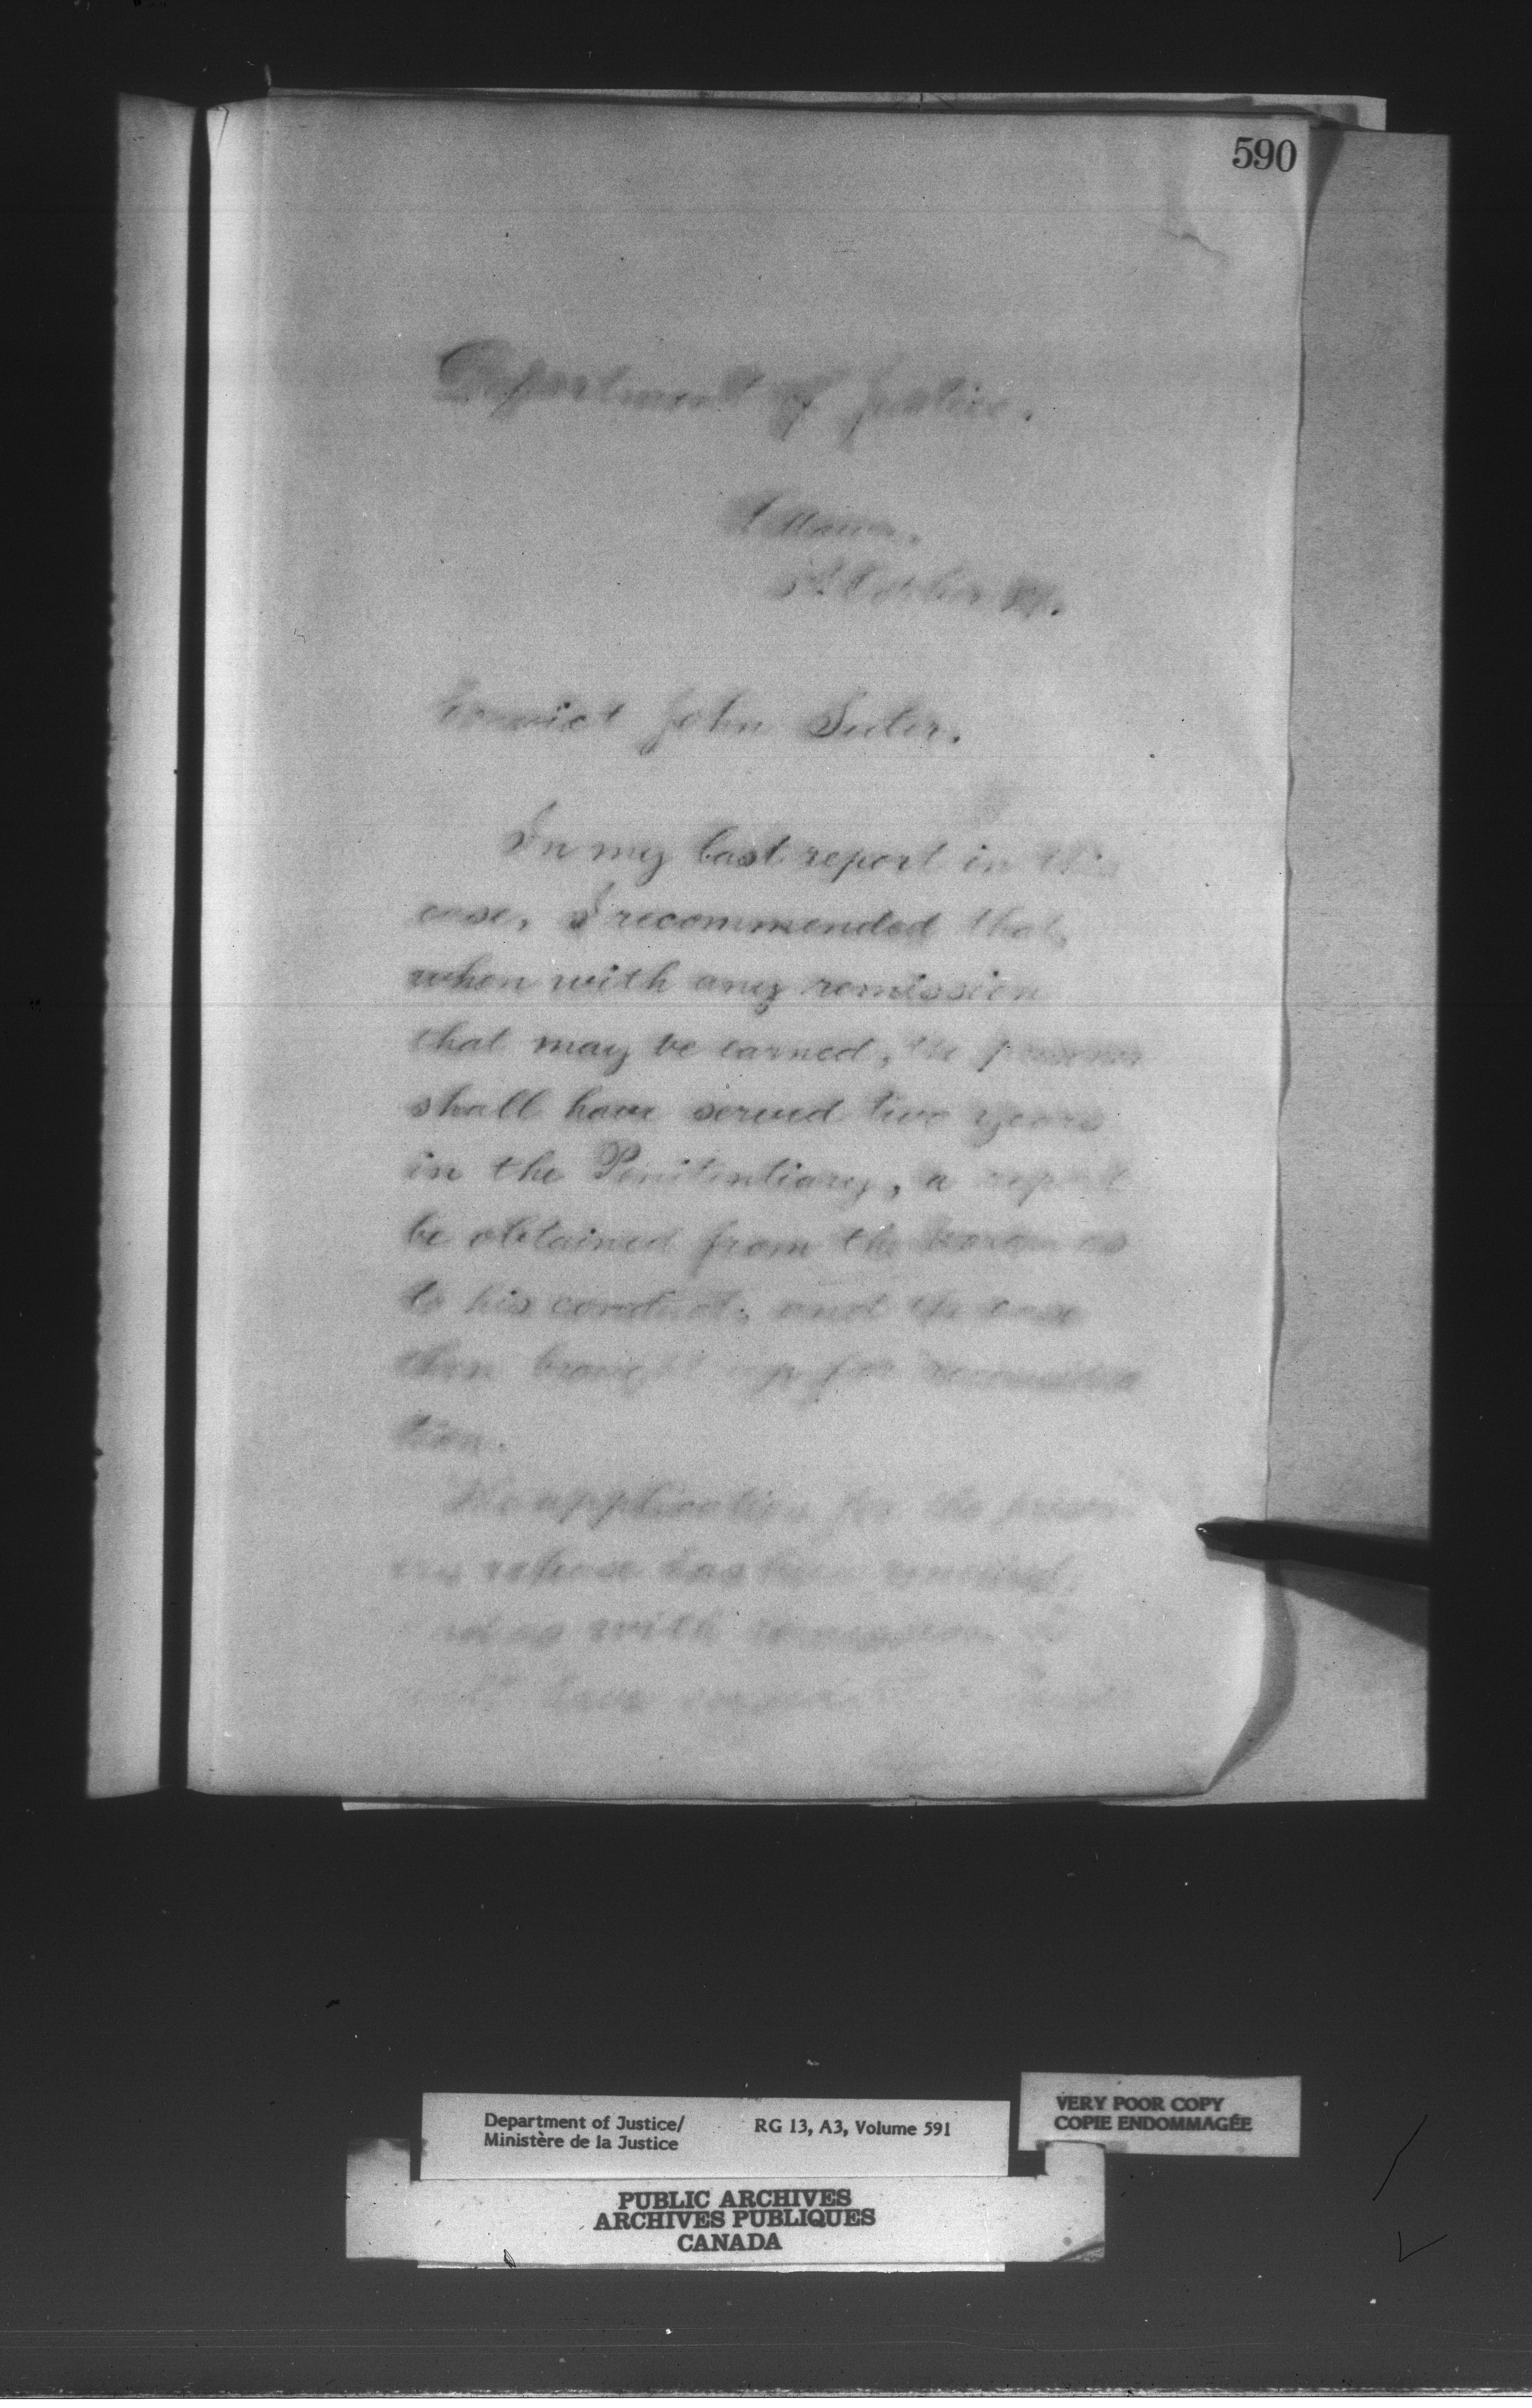 590
Department of Justice.
Ottawa,
October
Convict John Suter.
In my last report in this
case, I recommended that,
when with any remission
that may be earned, the prisoner
shall have served two years
in the Penitentiary, a report
be obtained from the Warden as
to his conduct, and the case
then brought up for reconsidera
tion.
The application for the prison
ers release has been renewed,
and as with remission
have served
Department of Justice/
Ministère de la Justice
RG 13, A3, Volume 591
VERY POOR COPY
COPIE ENDOMMAGÉE
PUBLIC ARCHIVES
ARCHIVES PUBLIQUES
CANADA